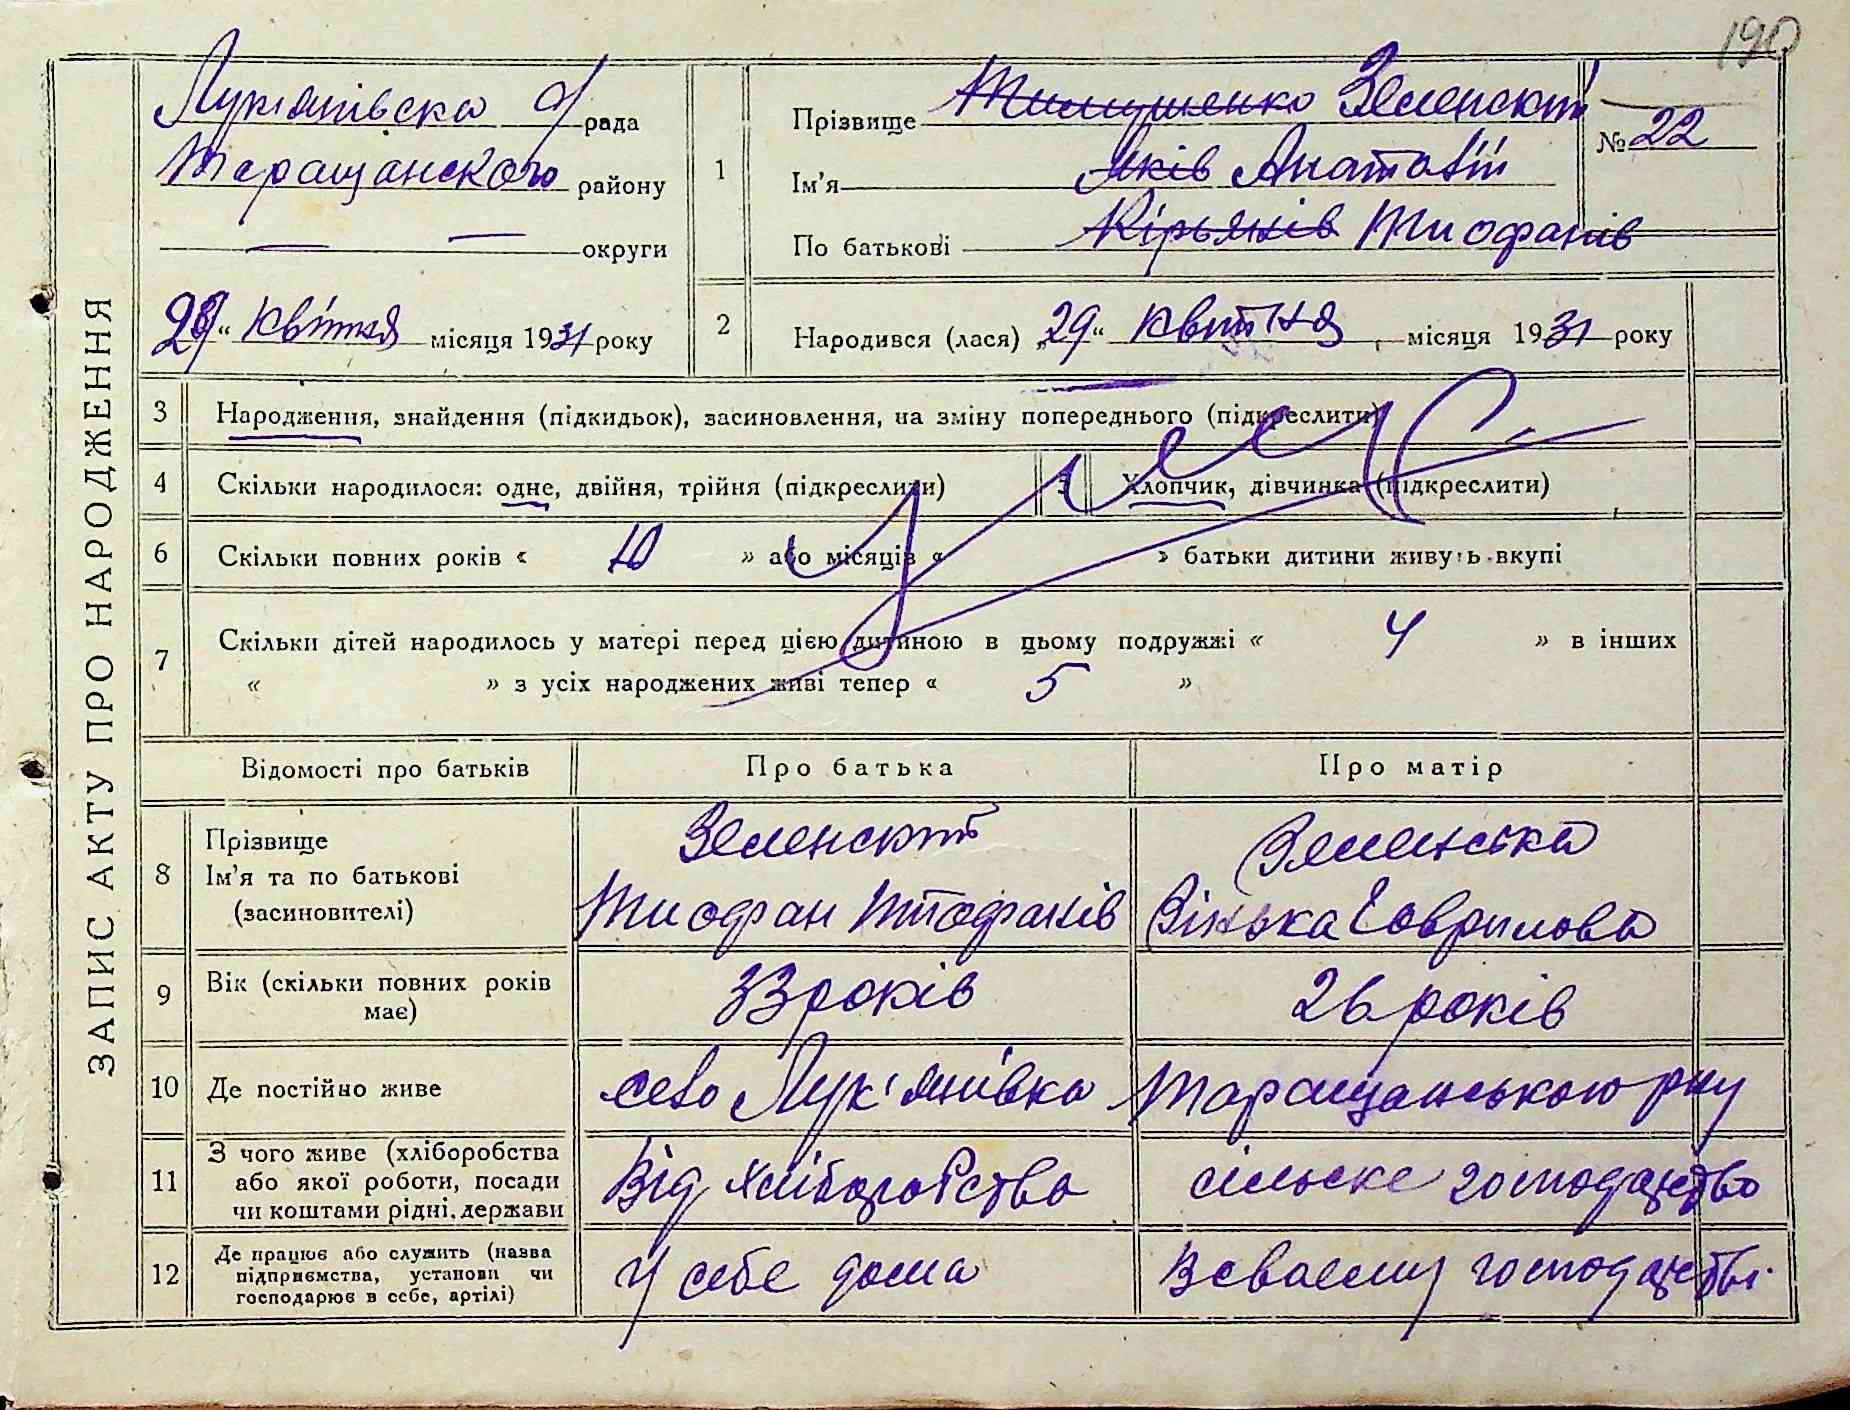 190
ЗАПИС АКТУ ПРО НАРОДЖЕННЯ
Лукіянівска с/рада
Таращанского району
— — округи
29 „ квітня місяця 1931 року
1
Прізвище Тимушенко Зеленский
№ 22
Ім'я Яків Анатавій
По батькові Кірьяків Тиофанів
2
Народився (лася) „29“ квітня місяця 1931 року
3 Народження, знайдення (підкидьок), засиновлення, на зміну попереднього (підкреслити)
4 Скільки народилося: одне, двійня, трійня (підкреслити) 5 Хлопчик, дівчинка (підкреслити)
6 Скільки повних років « 10 » або місяців « » батьки дитини живуть вкупі
7 Скільки дітей народилось у матері перед цією дитиною в цьому подружжі « 4 » в інших
« » з усіх народжених живі тепер « 5 »
Відомості про батьків Про батька Про матір
8 Прізвище
Ім'я та по батькові
(засиновителі)
Зеленский
Тиофан Тиофанів
Зеленська
Вінька Говрилова
9 Вік (скільки повних років має) 33 років 26 років
10 Де постійно живе село Лук'янівка Таращанського р-ну
11 З чого живе (хліборобства
або якої роботи, посади
чи коштами рідні, держави
Від хліборобства сільске господарство
12 Де працює або служить (назва
підприємства, установи чи
господарює в себе, артілі)
У себе дома В сваему господарстві.